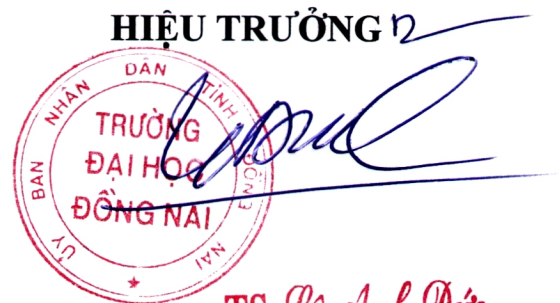 HIỆU TRƯỞNG
ỦY BAN NHÂN DÂN TỈNH ĐỒNG NAI
TRƯỜNG
ĐẠI HỌC
ĐỒNG NAI
TS.